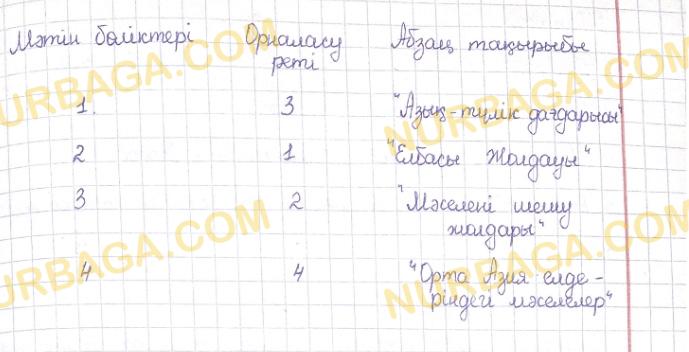 Мәтін бөліктері Орналасу реті Абзац тақырыбы
1. 3 "Азық-түлік дағдарысы"
2 1 "Елбасы Жолдауы"
3 2 "Мәселені шешу
жолдары"
4 4 "Орта Азия елде-
ріндегі мәселелер"
NURBAGA.COM
NURBAGA.COM
NURBAGA.COM
NURBAGA.COM